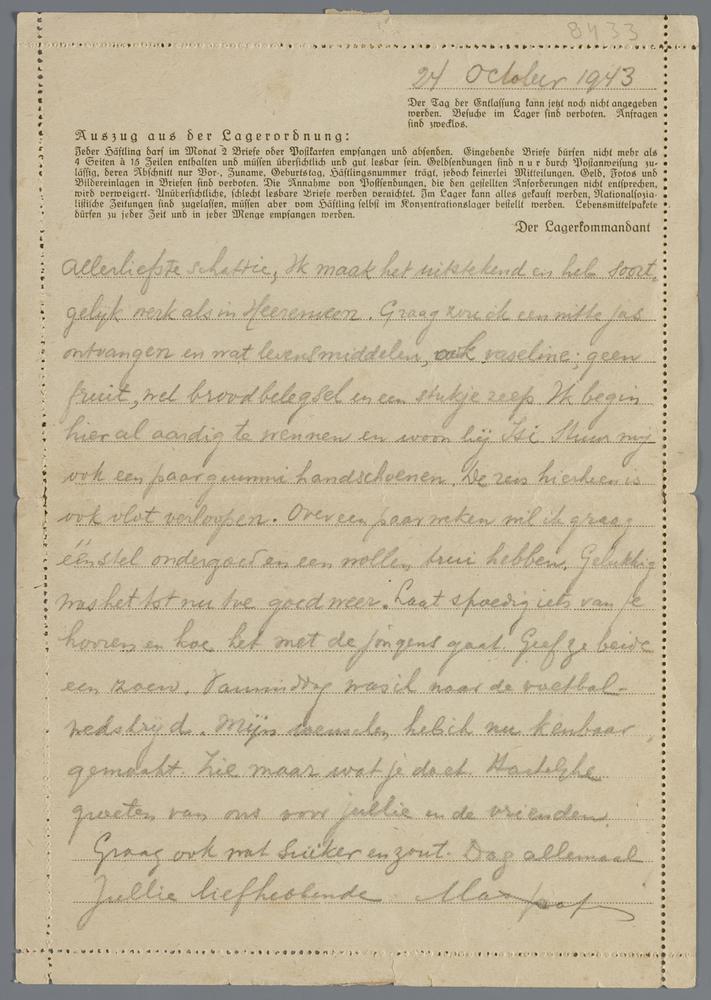 8433
24 October 1943
Der Tag der Entlassung kann jetzt noch nicht angegeben
werden. Besuche im Lager sind verboten. Anfragen
sind zwecklos.
Auszug aus der Lagerordnung:
Jeder Häftling darf im Monat 2 Briefe oder Postkarten empfangen und absenden. Eingehende Briefe dürfen nicht mehr als
4 Seiten à 15 Zeilen enthalten und müssen übersichtlich und gut lesbar sein. Geldsendungen sind nur durch Postanweisung zu-
lässig, deren Abschnitt nur Vor-, Zuname, Geburtstag, Häftlingsnummer trägt, jedoch keinerlei Mitteilungen. Geld, Fotos und
Bildereinlagen in Briefen sind verboten. Die Annahme von Postsendungen, die den gestellten Anforderungen nicht entsprechen,
wird verweigert. Unübersichtliche, schlecht lesbare Briefe werden vernichtet. Im Lager kann alles gekauft werden, Nationalsozia-
listische Zeitungen sind zugelassen, müssen aber vom Häftling selbst im Konzentrationslager bestellt werden. Lebensmittelpakete
dürfen zu jeder Zeit und in jeder Menge empfangen werden.
Der Lagerkommandant
Allerliefste schattie, Ik maak het uitstekend en heb soort-
gelijk werk als in Heerenveen. Graag zou ik een witte jas
ontvangen en wat levensmiddelen, ook vaseline; geen
fruit, wel broodbelegsel en een stukje zeep. Ik begin
hier al aardig te wennen en woon bij Isi. Stuur mij
ook een paar gummi handschoenen. De reis hierheen is
ook vlot verloopen. Over een paar weken wil ik graag
éénstel ondergoed en een wollen trui hebben. Gelukkig
was het tot nu toe goed weer. Laat spoedig iets van je
hooren en hoe het met de jongens gaat. Geef ze beide
een zoen. Vanmiddag was ik naar de voetbal-
wedstrijd. Mijn wenschen heb ik nu kenbaar
gemaakt. Zie maar wat je doet. Hartelijke
groeten van ons voor jullie en de vrienden.
Graag ook wat suiker en zout. Dag allemaal
Jullie liefhebbende Max